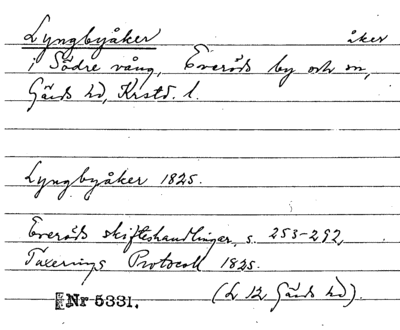 Lyngbyåker åker
i Södre vång, Everöds by och sn,
Gärds hd, Krstd. l.
Lyngbyåker 1825.
Everöds skifteshandlingar, s. 253-292,
Taxerings Protocoll 1825.
Nr 5331. (L 12 Gärds hd).